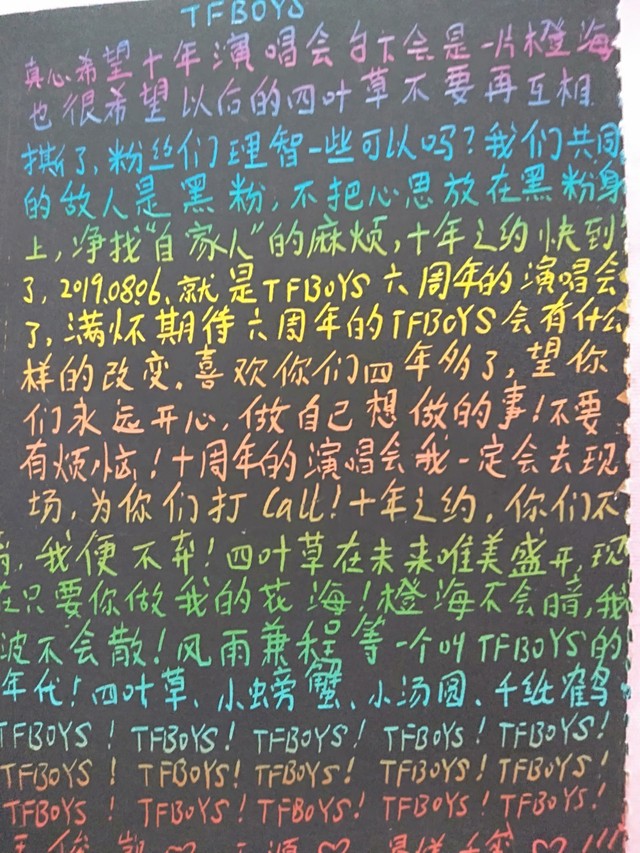 TFBOYS
真心希望十年演唱会台下会是一片橙海
也很希望以后的四叶草不要再互相
撕了,粉丝们理智一些可以吗?我们共同
的敌人是黑粉,不把心思放在黑粉身
上,净找“自家人”的麻烦,十年之约快到
了,2019.08.06,就是TFBOYS六周年的演唱会
了,满怀期待六周年的TFBOYS会有什么
样的改变。喜欢你们四年多了,望你
们永远开心,做自己想做的事!不要
有烦恼!十周年的演唱会我一定会去现
场,为你们打Call!十年之约,你们不
我便不弃!四叶草在未来唯美盛开,现
在只要你做我的花海!橙海不会暗,我
波不会散!风雨兼程等一个叫TFBOYS的
年代!四叶草、小螃蟹、小汤圆、千纸鹤
TFBOYS! TFBOYS! TFBOYS! TFBOYS! TFBOYS!
TFBOYS! TFBOYS! TFBOYS! TFBOYS! TFBOYS!
TFBOYS! TFBOYS! TFBOYS! TFBOYS! TFBOYS!